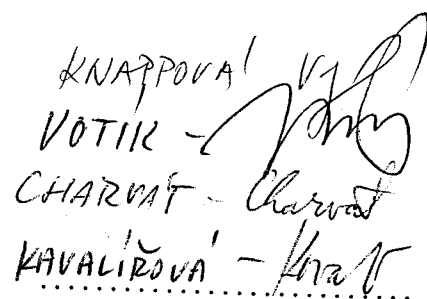 KNAPPOVÁ
VOTIK -
CHARVÁT - Charvát
KAVALÍŘOVÁ -